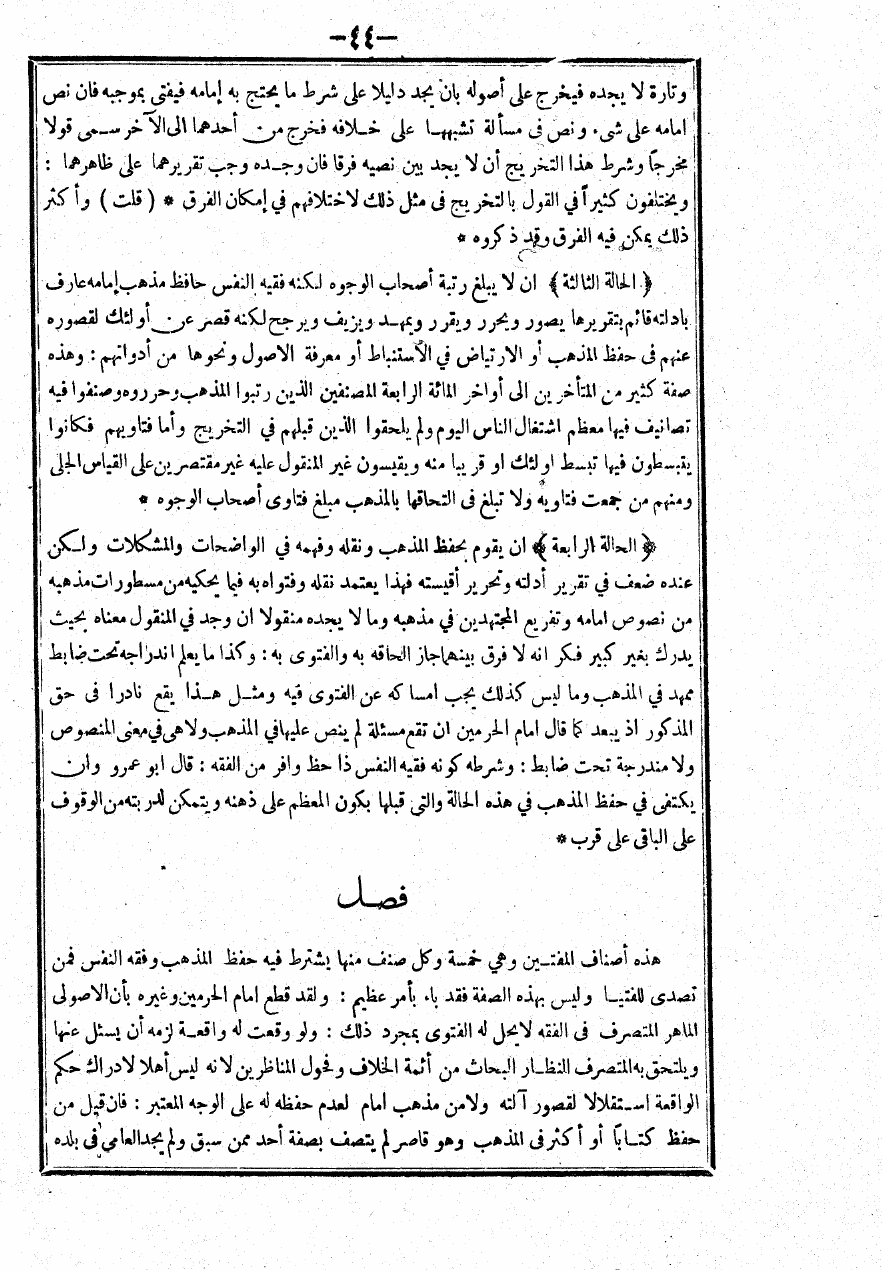 —٤٤—
وتارة لا يجده فيخرج على أصوله بان يجد دليلا على شرط ما يحتج به إمامه فيفتى بموجبه فان نص
امامه على شىء ونص فى مسألة تشبهها على خلافه فخرج من أحدهما الى الآخر سمى قولا
مخرجاً وشرط هذا التخريج أن لا يجد بين نصيه فرقا فان وجده وجب تقريرهما على ظاهرهما :
ويختلفون كثيراً في القول بالتخريج فى مثل ذلك لاختلافهم في إمكان الفرق * ( قلت ) وأكثر
ذلك يمكن فيه الفرق وقد ذكروه *
﴿ الحالة الثالثة ﴾ ان لا يبلغ رتبة أصحاب الوجوه لكنه فقيه النفس حافظ مذهب إمامه عارف
بادلته قائم بتقريرها يصور ويحرر ويقرر ويمهد ويزيف ويرجح لكنه قصر عن أولئك لقصوره
عنهم فى حفظ المذهب أو الارتياض في الاستنباط أو معرفة الاصول ونحوها من أدواتهم : وهذه
صفة كثير من المتأخرين الى أواخر المائة الرابعة المصنفين الذين رتبوا المذهب وحرروه وصنفوا فيه
تصانيف فيها معظم اشتغال الناس اليوم ولم يلحقوا الذين قبلهم في التخريج وأما فتاويهم فكانوا
يتبسطون فيها تبسط اولئك او قريبا منه ويقيسون غير المنقول عليه غير مقتصرين على القياس الجلى
ومنهم من جمعت فتاويه ولا تبلغ فى التحاقها بالمذهب مبلغ فتاوى أصحاب الوجوه *
﴿ الحالة الرابعة ﴾ ان يقوم بحفظ المذهب ونقله وفهمه في الواضحات والمشكلات ولكن
عنده ضعف في تقرير أدلته وتحرير أقيسته فهذا يعتمد نقله وفتواه به فيما يحكيه من مسطورات مذهبه
من نصوص امامه وتفريع المجتهدين في مذهبه وما لا يجده منقولا ان وجد في المنقول معناه بحيث
يدرك بغير كبير فكر انه لا فرق بينهما جاز الحاقه به والفتوى به : وكذا ما يعلم اندراجه تحت ضابط
ممهد في المذهب وما ليس كذلك يجب امساكه عن الفتوى فيه ومثل هذا يقع نادرا فى حق
المذكور اذ يبعد كما قال امام الحرمين ان تقع مسئلة لم ينص عليها في المذهب ولا هى في معنى المنصوص
ولا مندرجة تحت ضابط : وشرطه كونه فقيه النفس ذا حظ وافر من الفقه : قال ابو عمرو وان
يكتفى في حفظ المذهب في هذه الحالة والتى قبلها بكون المعظم على ذهنه ويتمكن لدربته من الوقوف
على الباقى على قرب *
فصل
هذه أصناف المفتين وهي خمسة وكل صنف منها يشترط فيه حفظ المذهب وفقه النفس فمن
تصدى للفتيا وليس بهذه الصفة فقد باء بأمر عظيم : ولقد قطع امام الحرمين وغيره بأن الاصولى
الماهر المتصرف فى الفقه لا يحل له الفتوى بمجرد ذلك : ولو وقعت له واقعة لزمه أن يسئل عنها
ويلتحق به المتصرف النظار البحاث من أئمة الخلاف وفحول المناظرين لانه ليس أهلا لادراك حكم
الواقعة استقلالا لقصور آلته ولا من مذهب امام لعدم حفظه له على الوجه المعتبر : فان قيل من
حفظ كتاباً أو أكثر فى المذهب وهو قاصر لم يتصف بصفة أحد ممن سبق ولم يجد العامي فى بلده